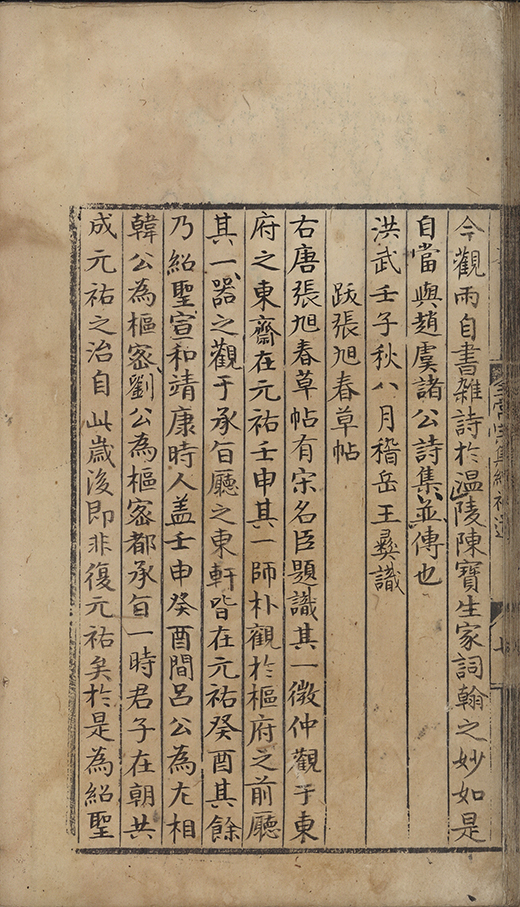 今觀雨自書雜詩於温陵陳寶生家詞翰之妙如是
自當與趙虞諸公詩集並傳也
洪武壬子秋八月稽岳王彝識
跋張旭春草帖
右唐張旭春草帖有宋名臣題識其一微仲觀于東
府之東齋在元祐壬申其一師朴觀於樞府之前廳
其一器之觀于承㫖廳之東軒皆在元祐癸酉其餘
乃紹聖宣和靖康時人盖壬申癸酉間吕公為左相
韓公為樞宻劉公為樞宻都承㫖一時君子在朝共
成元祐之治自此歲後即非復元祐矣於是為紹聖